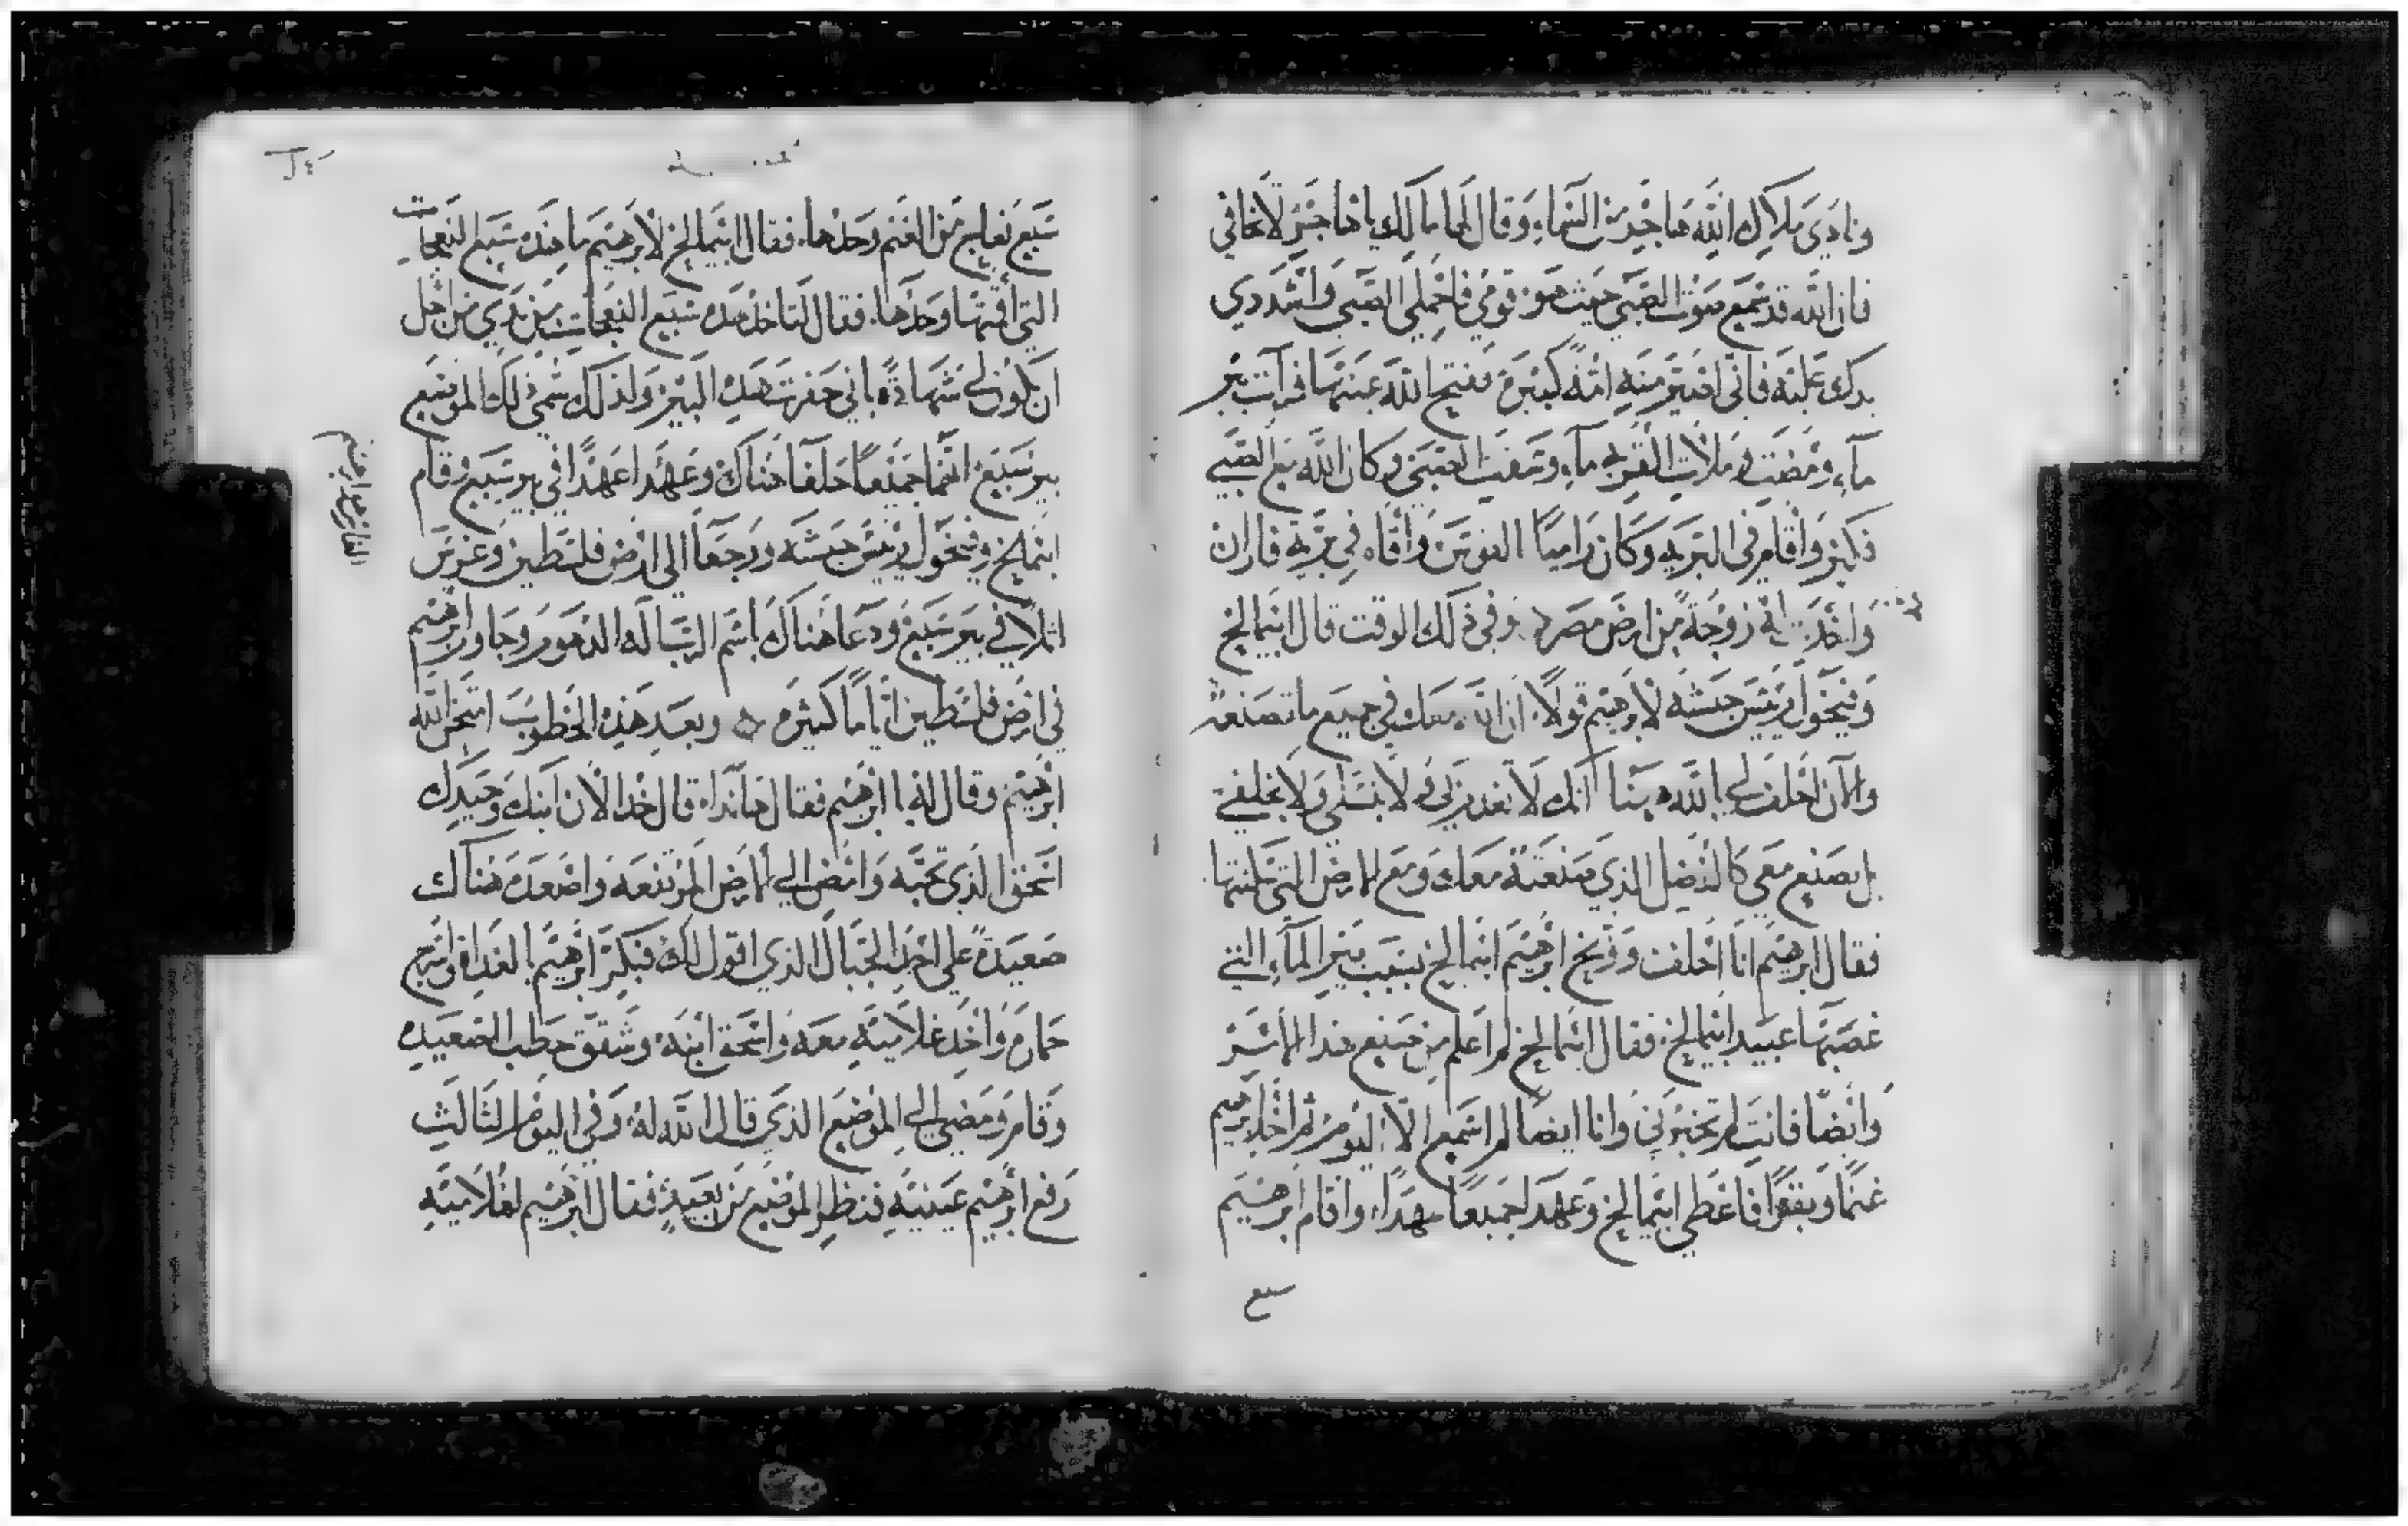 ونادى ملاك الله هاجر من السماء وقال لها ما لك يا هاجر لا تخافي
فان الله قد سمع صوت الصبي حيث هو قومي فاحملي الصبي واشددي
يدك عليه فاني اصير منه امة كبيرة ففتح الله عينيها فرات بير
ماء ومضت وملات القربة ماء وسقت الصبي وكان الله مع الصبي
فكبر واقام في البرية وكان راميا القوس واقام في برية فاران
واخذت له زوجة من ارض مصر وفي ذلك الوقت قال ابيمالخ
وفيخول رييس جيشه لابرهيم قولا ان الله معك في جميع ما تصنعه
والان احلف لي بالله بيننا انك لا تغدر بي ولا بنسلي ولا بخلفي
بل تصنع معي كالفضل الذي صنعته معك ومع الارض التي سكنتها
فقال ابرهيم انا احلف ووبخ ابرهيم ابيمالخ بسبب بير الماء التي
غصبتها عبيد ابيمالخ فقال ابيمالخ لم اعلم من صنع هذا الامر
وايضا فانت لم تخبرني وانا ايضا لم اسمع الا اليوم ثم اخذ ابرهيم
غنما وبقرا فاعطى ابيمالخ وعهدا جميعا عهدا واقام ابرهيم
سبع
سبع نعاج من الغنم وحدها فقال ابيمالخ لابرهيم ما هذه سبع النعجات
التي اقمتها وحدها فقال لتاخذ هذه سبع النعجات من يدي من اجل
ان تكون لي شهادة باني حفرت هذه البير ولذلك سمي ذلك الموضع
بير سبع انهما جميعا حلفا هناك وعهدا عهدا في بير سبع وقام
ابيمالخ وفيخول رييس جيشه ورجعا الى ارض فلسطين وغرس
اثلا في بير سبع ودعا هناك باسم الرب اله الدهور وجاور ابرهيم
في ارض فلسطين اياما كثيرة وبعد هذه الخطوب امتحن الله
ابرهيم وقال له يا ابرهيم فقال هانذا قال خذ الان ابنك وحيدك
اسحق الذي تحبه وامض الى الارض المرتفعة واصعده هناك
صعيدة على احد الجبال الذي اقول لك فبكر ابرهيم بالغداة واسرج
حماره واخذ غلاميه معه واسحق ابنه وشقق حطب الصعيدة
وقام ومضى الى الموضع الذي قال الله له وفي اليوم الثالث
رفع ابرهيم عينيه فنظر الموضع من بعيد فقال ابرهيم لغلاميه